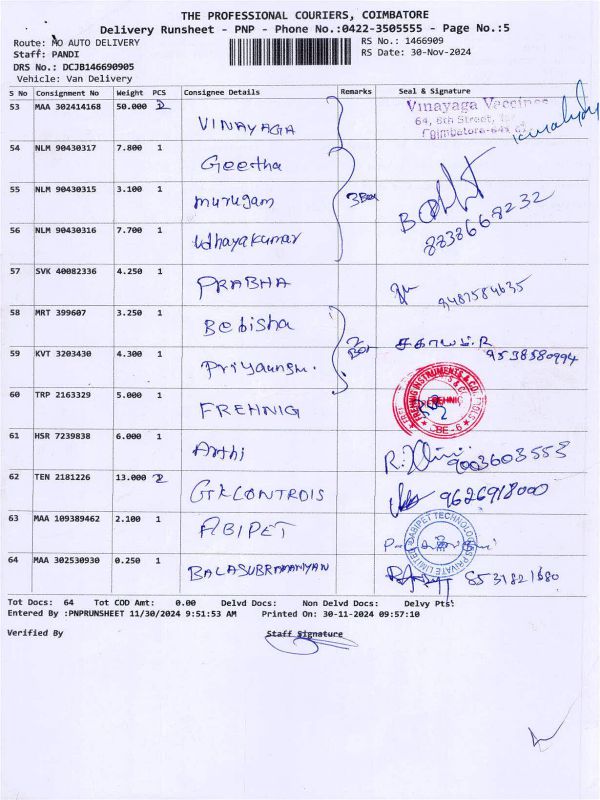 THE PROFESSIONAL COURIERS, COIMBATORE
Delivery Runsheet - PNP - Phone No.:0422-3505555 - Page No.:5
Route: MO AUTO DELIVERY RS No.: 1466909
Staff: PANDI RS Date: 30-Nov-2024
DRS No.: DCJB146690905
Vehicle: Van Delivery
S No Consignment No Weight PCS Consignee Details Remarks Seal & Signature
53 MAA 302414168 50.000 2 VINAYAGA Vinayaga Vaccines
64, 6th Street,
Coimbatore-641
54 NLM 90430317 7.800 1 Geetha
55 NLM 90430315 3.100 1 Murugam 3 Box
56 NLM 90430316 7.700 1 Udhayakumar 8838668232
57 SVK 40082336 4.250 1 PRABHA 9487584635
58 MRT 399607 3.250 1 Bebisha 2 Box சகாயம்.R
59 KVT 3203430 4.300 1 9538580994
60 TRP 2163329 5.000 1 FREHNIG FREHNIG INSTRUMENTS & CO. FREHNIG CBE-6
61 HSR 7239838 6.000 1 Arthi 9003603553
62 TEN 2181226 13.000 2 GK CONTROLS 9626918000
63 MAA 109389462 2.100 1 ABIPET ABIPET TECHNOLOGIES PRIVATE LIMITED
64 MAA 302530930 0.250 1 BALASUBRAMANIYAN 8531821680
Tot Docs: 64 Tot COD Amt: 0.00 Delvd Docs: Non Delvd Docs: Delvy Pts:
Entered By :PNPRUNSHEET 11/30/2024 9:51:53 AM Printed On: 30-11-2024 09:57:10
Verified By Staff Signature